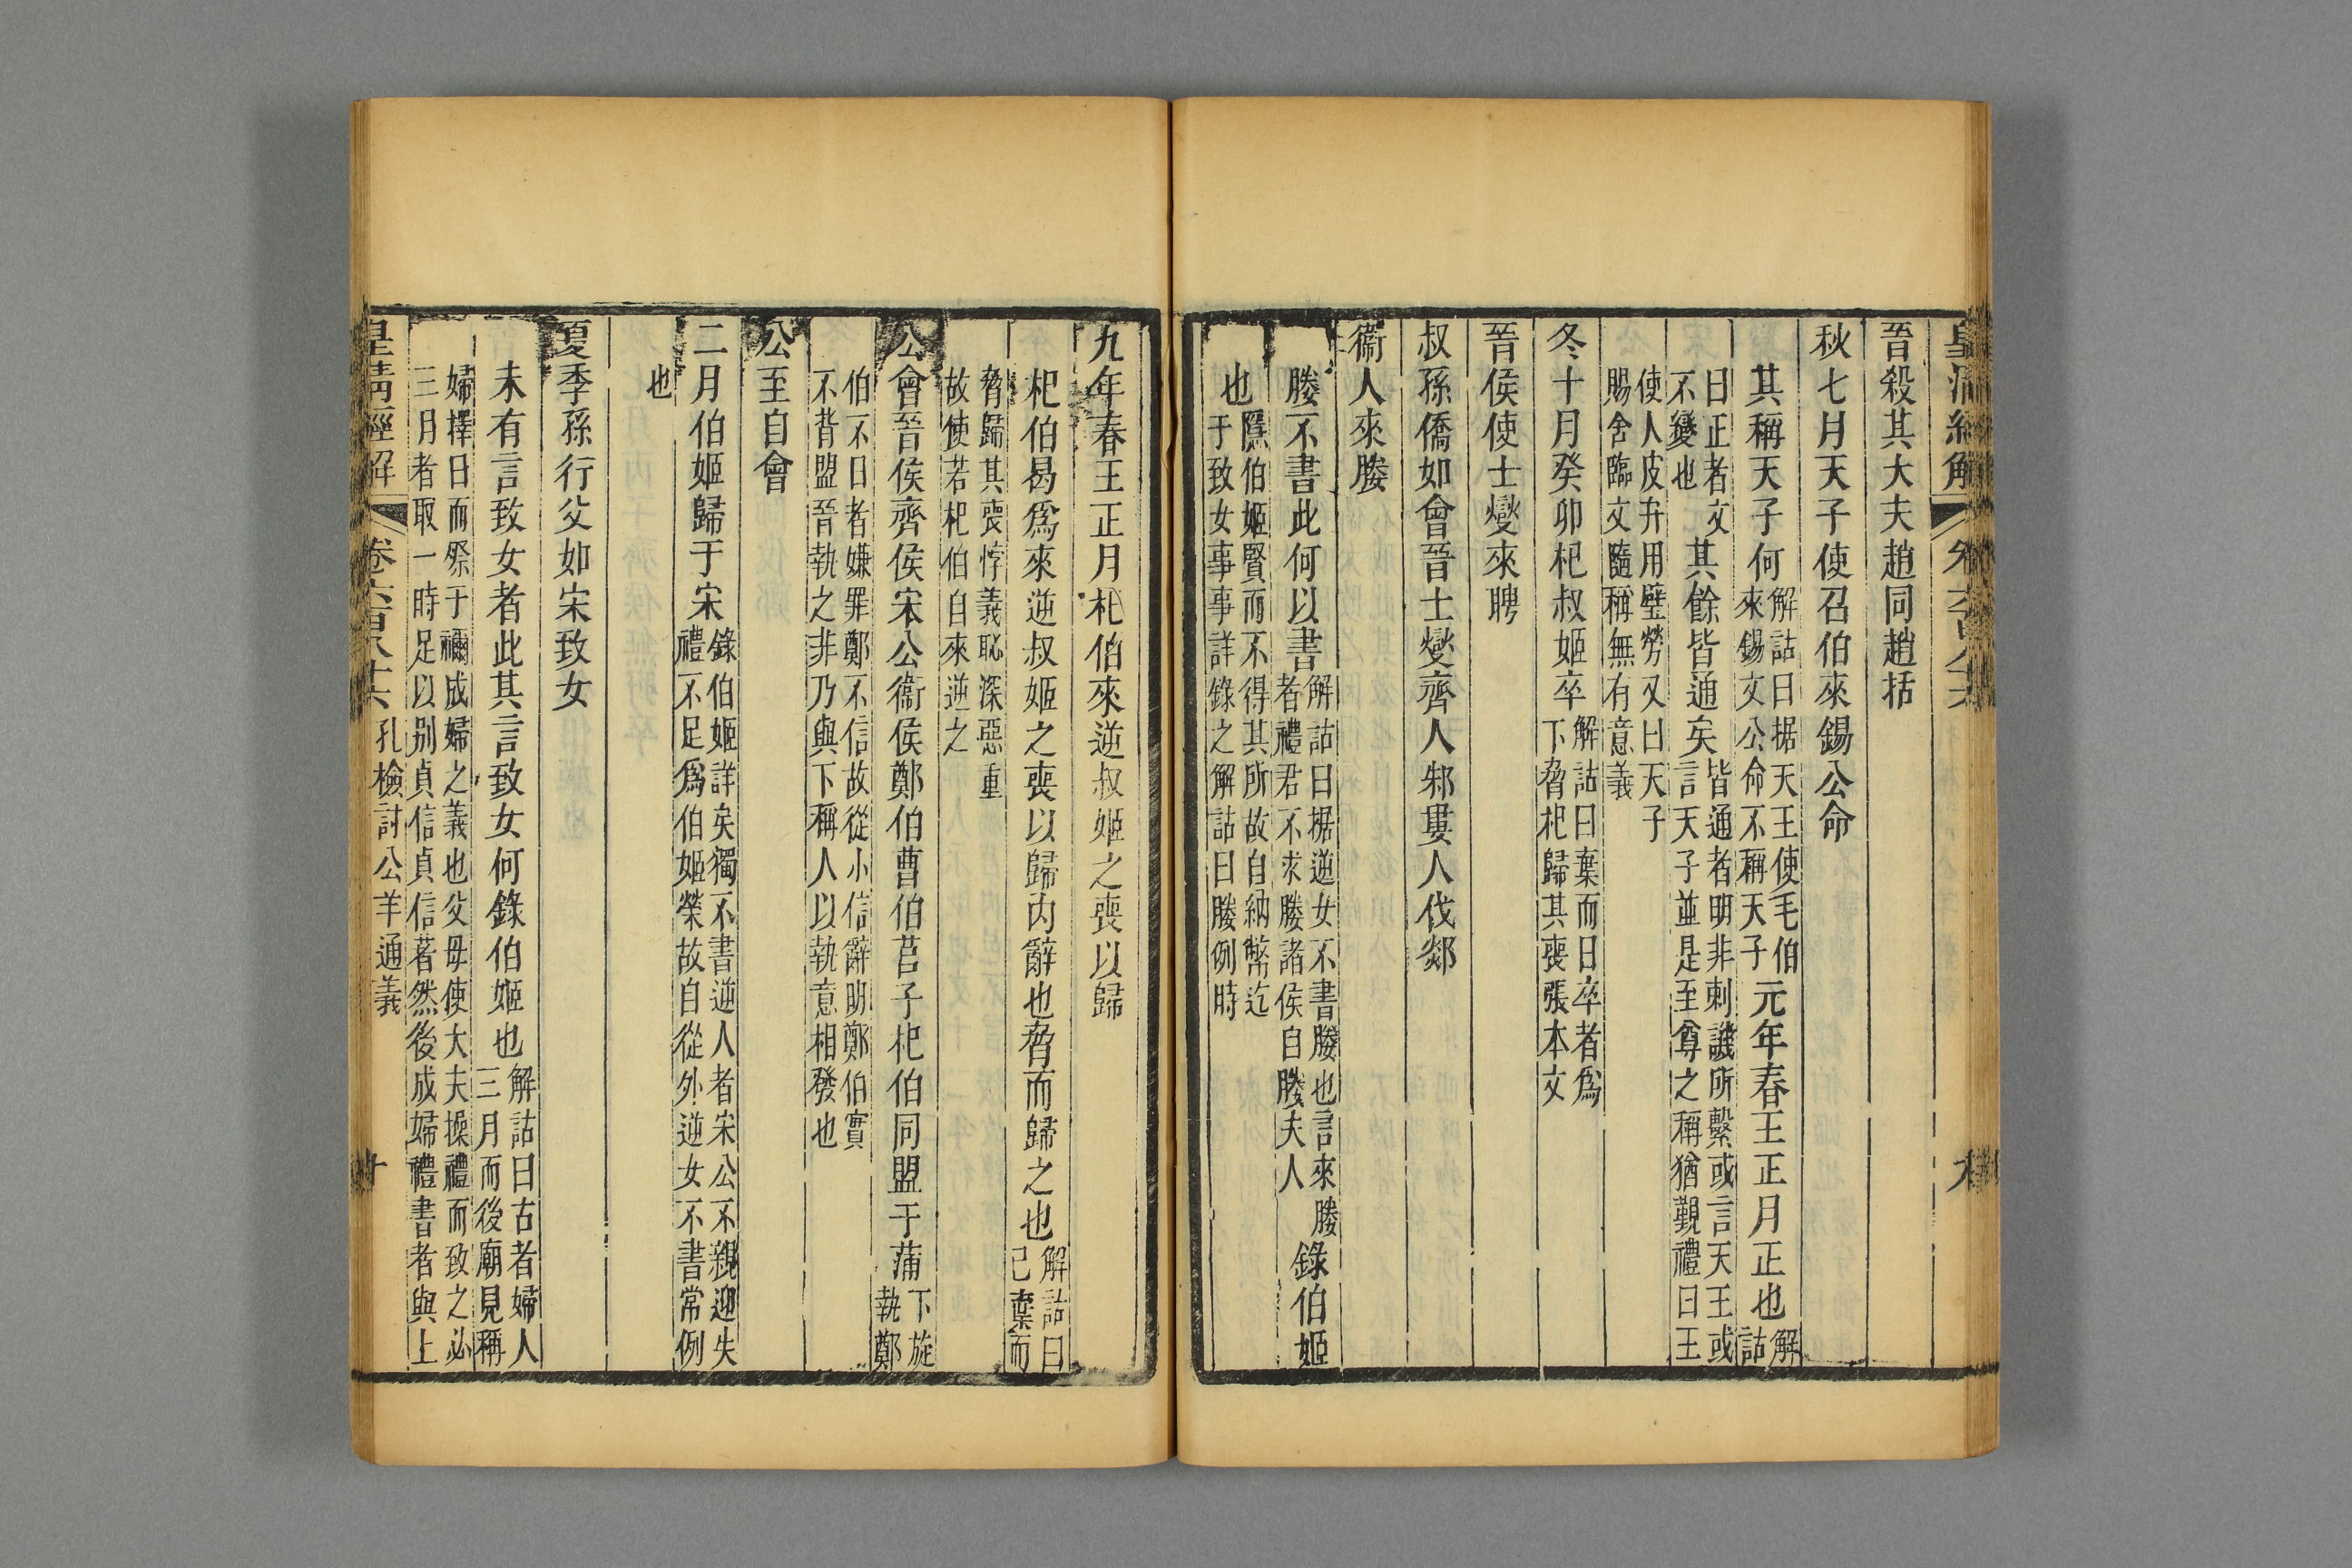 皇清經解
晉殺其大夫趙同趙括
秋七月天子使召伯來錫公命
其稱天子何解詁曰据天王使毛伯來錫文公命不稱天子元年春王正月正也解詁
曰正者文不變也其餘皆通矣皆通者明非刺譏所繫或言天王或言天子並是至尊之稱猶覲禮曰王
使人皮弁用璧勞又曰天子賜舍臨文隨稱無有意義
冬十月癸卯杞叔姬卒解詁曰棄而日卒者爲下脅杞歸其喪張本文
晉侯使士燮來聘
叔孫僑如會晉士燮齊人邾婁人伐郯
衞人來媵
媵不書此何以書解詁曰据逆女不書媵也言來媵者禮君不求媵諸侯自媵夫人錄伯姬
也隱伯姬賢而不得其所故自納幣迄于致女事事詳錄之解詁曰媵例時
九年春王正月杞伯來逆叔姬之喪以歸
杞伯曷爲來逆叔姬之喪以歸內辭也脅而歸之也解詁曰已棄而
脅歸其喪悖義恥深惡重故使若杞伯自來逆之
公會晉侯齊侯宋公衞侯鄭伯曹伯莒子杞伯同盟于蒲下旋執鄭
伯不日者嫌罪鄭不信故從小信辭明鄭伯實不背盟晉執之非乃與下稱人以執意相發也
公至自會
二月伯姬歸于宋錄伯姬詳矣獨不書逆人者宋公不親迎失禮不足爲伯姬榮故自從外逆女不書常例
也
夏季孫行父如宋致女
未有言致女者此其言致女何錄伯姬也解詁曰古者婦人三月而後廟見稱
婦擇日而祭于禰成婦之義也父母使大夫操禮而致之必三月者取一時足以别貞信貞信著然後成婦禮書者與上
皇清經解 卷六百八十六 孔檢討公羊通義 十